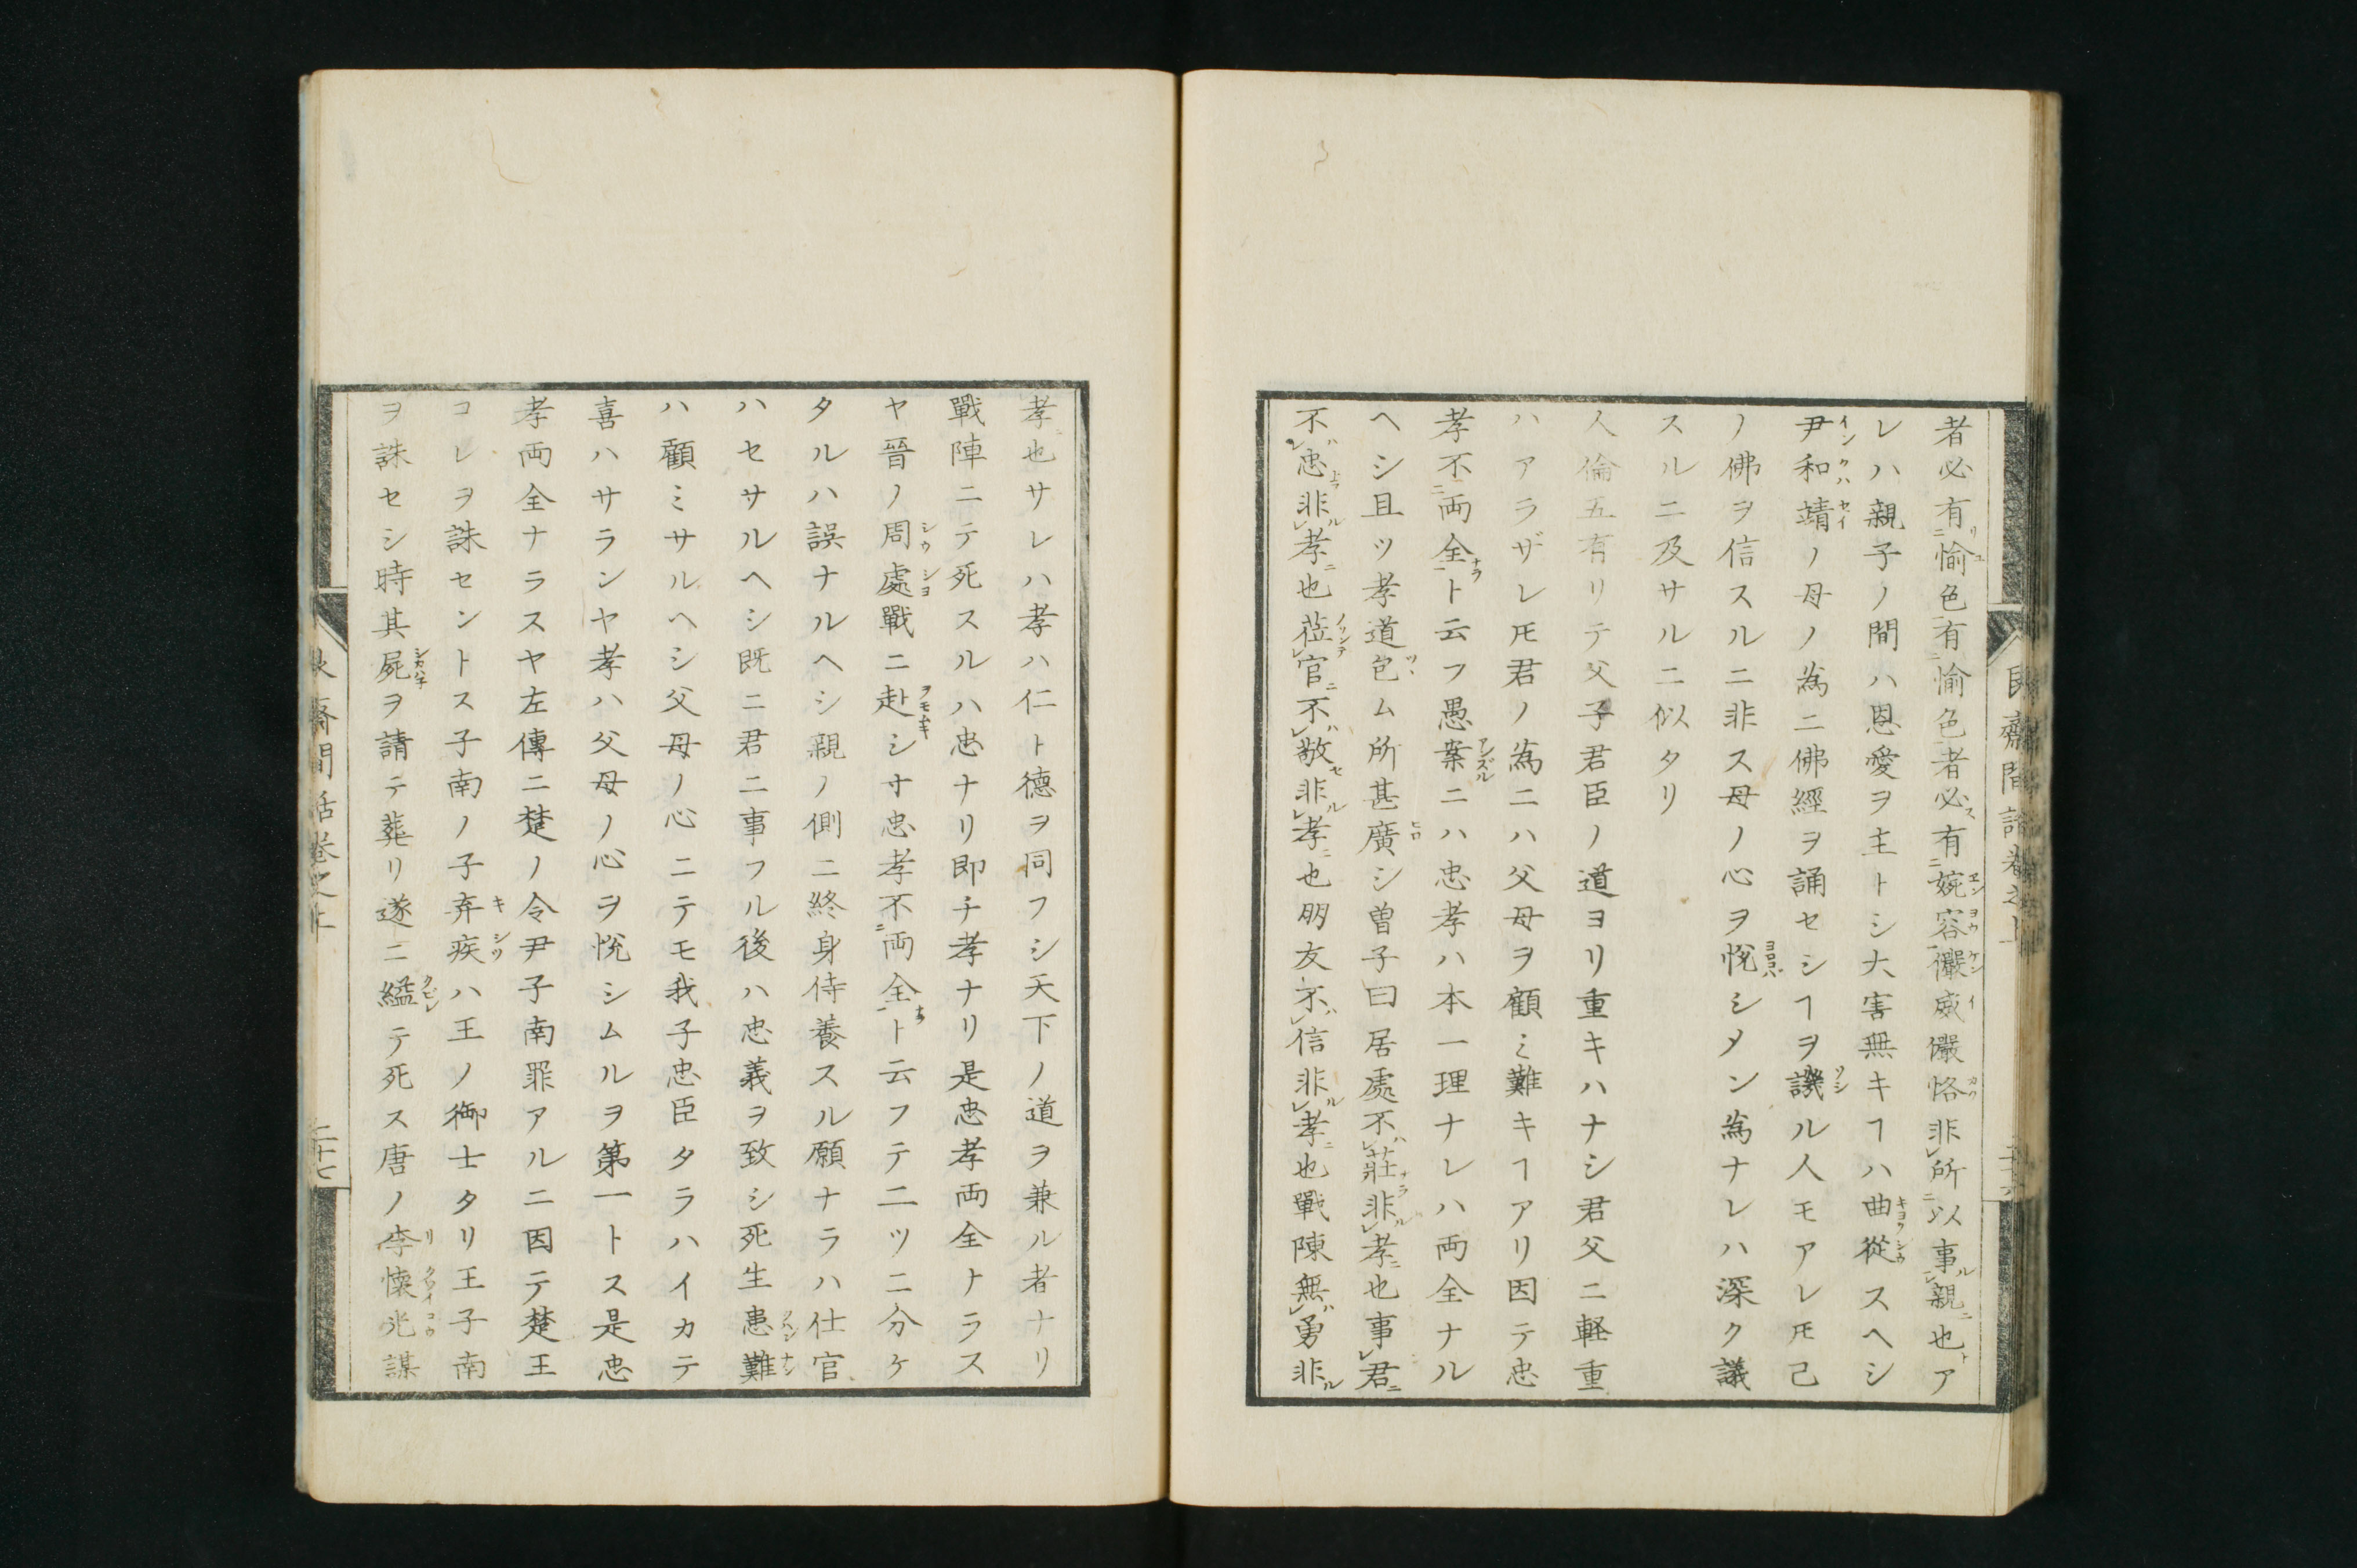 者必有愉色有愉色者必有婉容儼威儼恪非所以事親也ア
レハ親子ノ間ハ恩愛ヲ主トシ大害無キヿハ曲從スヘシ
尹和靖ノ母ノ為ニ佛經ヲ誦セシヿヲ譏ル人モアレ𪜈己
ノ佛ヲ信スルニ非ス母ノ心ヲ悅シメン為ナレハ深ク議
スルニ及サルニ似タリ
人倫五有リテ父子君臣ノ道ヨリ重キハナシ君父ニ軽重
ハアラザレ𪜈君ノ為ニハ父母ヲ顧ミ難キヿアリ因テ忠
孝不両全ト云フ愚案ニハ忠孝ハ本一理ナレハ両全ナル
ヘシ且ツ孝道包ム所甚廣シ曽子曰居處不莊非孝也事君
不忠非孝也莅官不敬非孝也朋友不信非孝也戰陳無勇非
孝也サレハ孝ハ仁ト德ヲ同フシ天下ノ道ヲ兼ル者ナリ
戰陣ニテ死スルハ忠ナリ即チ孝ナリ是忠孝両全ナラス
ヤ晉ノ周處戰ニ赴シ寸忠孝不両全ト云フテ二ツニ分ケ
タルハ誤ナルヘシ親ノ側ニ終身侍養スル願ナラハ仕官
ハセサルヘシ既ニ君ニ事フル後ハ忠義ヲ致シ死生患難
ハ顧ミサルヘシ父母ノ心ニテモ我子忠臣タラハイカテ
喜ハサランヤ孝ハ父母ノ心ヲ悅シムルヲ第一トス是忠
孝両全ナラスヤ左傳ニ楚ノ令尹子南罪アルニ因テ楚王
コレヲ誅セントス子南ノ子弃疾ハ王ノ御士タリ王子南
ヲ誅セシ時其屍ヲ請テ葬リ遂ニ縊テ死ス唐ノ李懷光謀